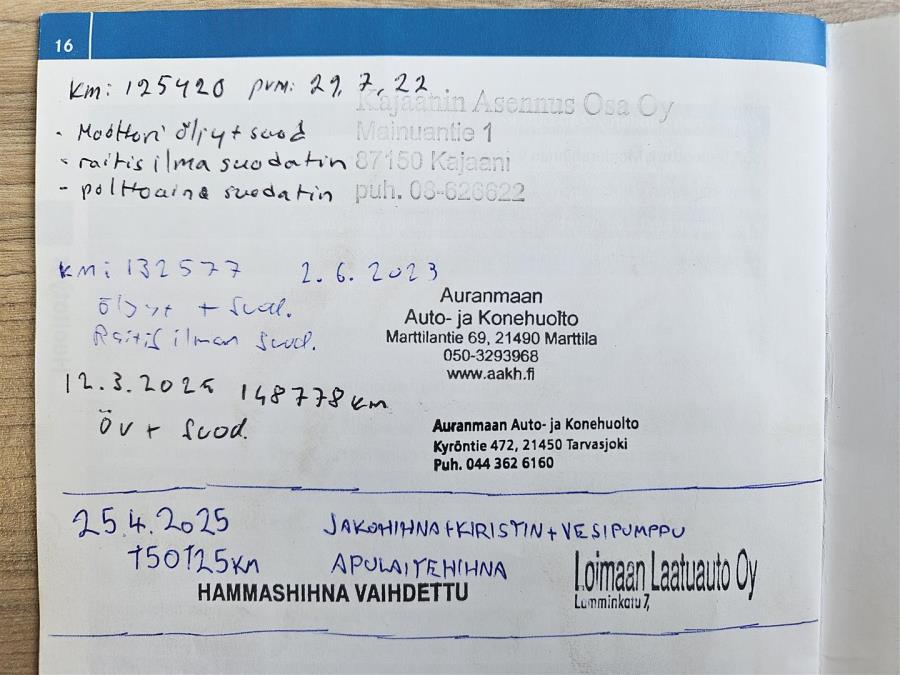 16
Km: 125420 pvm: 29.7.22
Kajaanin Asennus Osa Oy
- Moottori öljy + suod
Mainuantie 1
- raitis ilma suodatin
87150 Kajaani
- polttoaine suodatin
puh. 08-626622
Km: 132577 2.6.2023
Öljyt + Suod.
Raitis ilman suod.
Auranmaan
Auto- ja Konehuolto
Marttilantie 69, 21490 Marttila
050-3293968
www.aakh.fi
12.3.2025 148778 km
Öv + Suod.
Auranmaan Auto- ja Konehuolto
Kyröntie 472, 21450 Tarvasjoki
Puh. 044 362 6160
25.4.2025 JAKOHIHNA+KIRISTIN+VESIPUMPPU
150125KM APULAITEHIHNA
HAMMASHIHNA VAIHDETTU
Loimaan Laatuauto Oy
Lamminkatu 7,